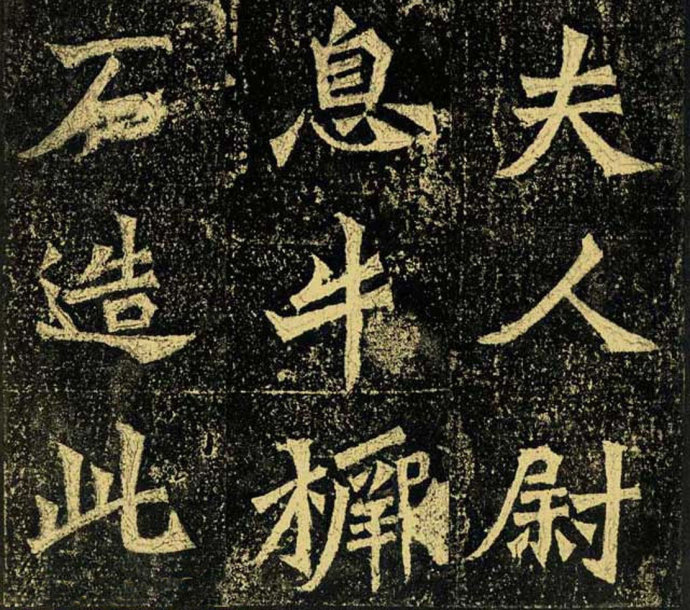 夫人尉
息牛橛
石造此